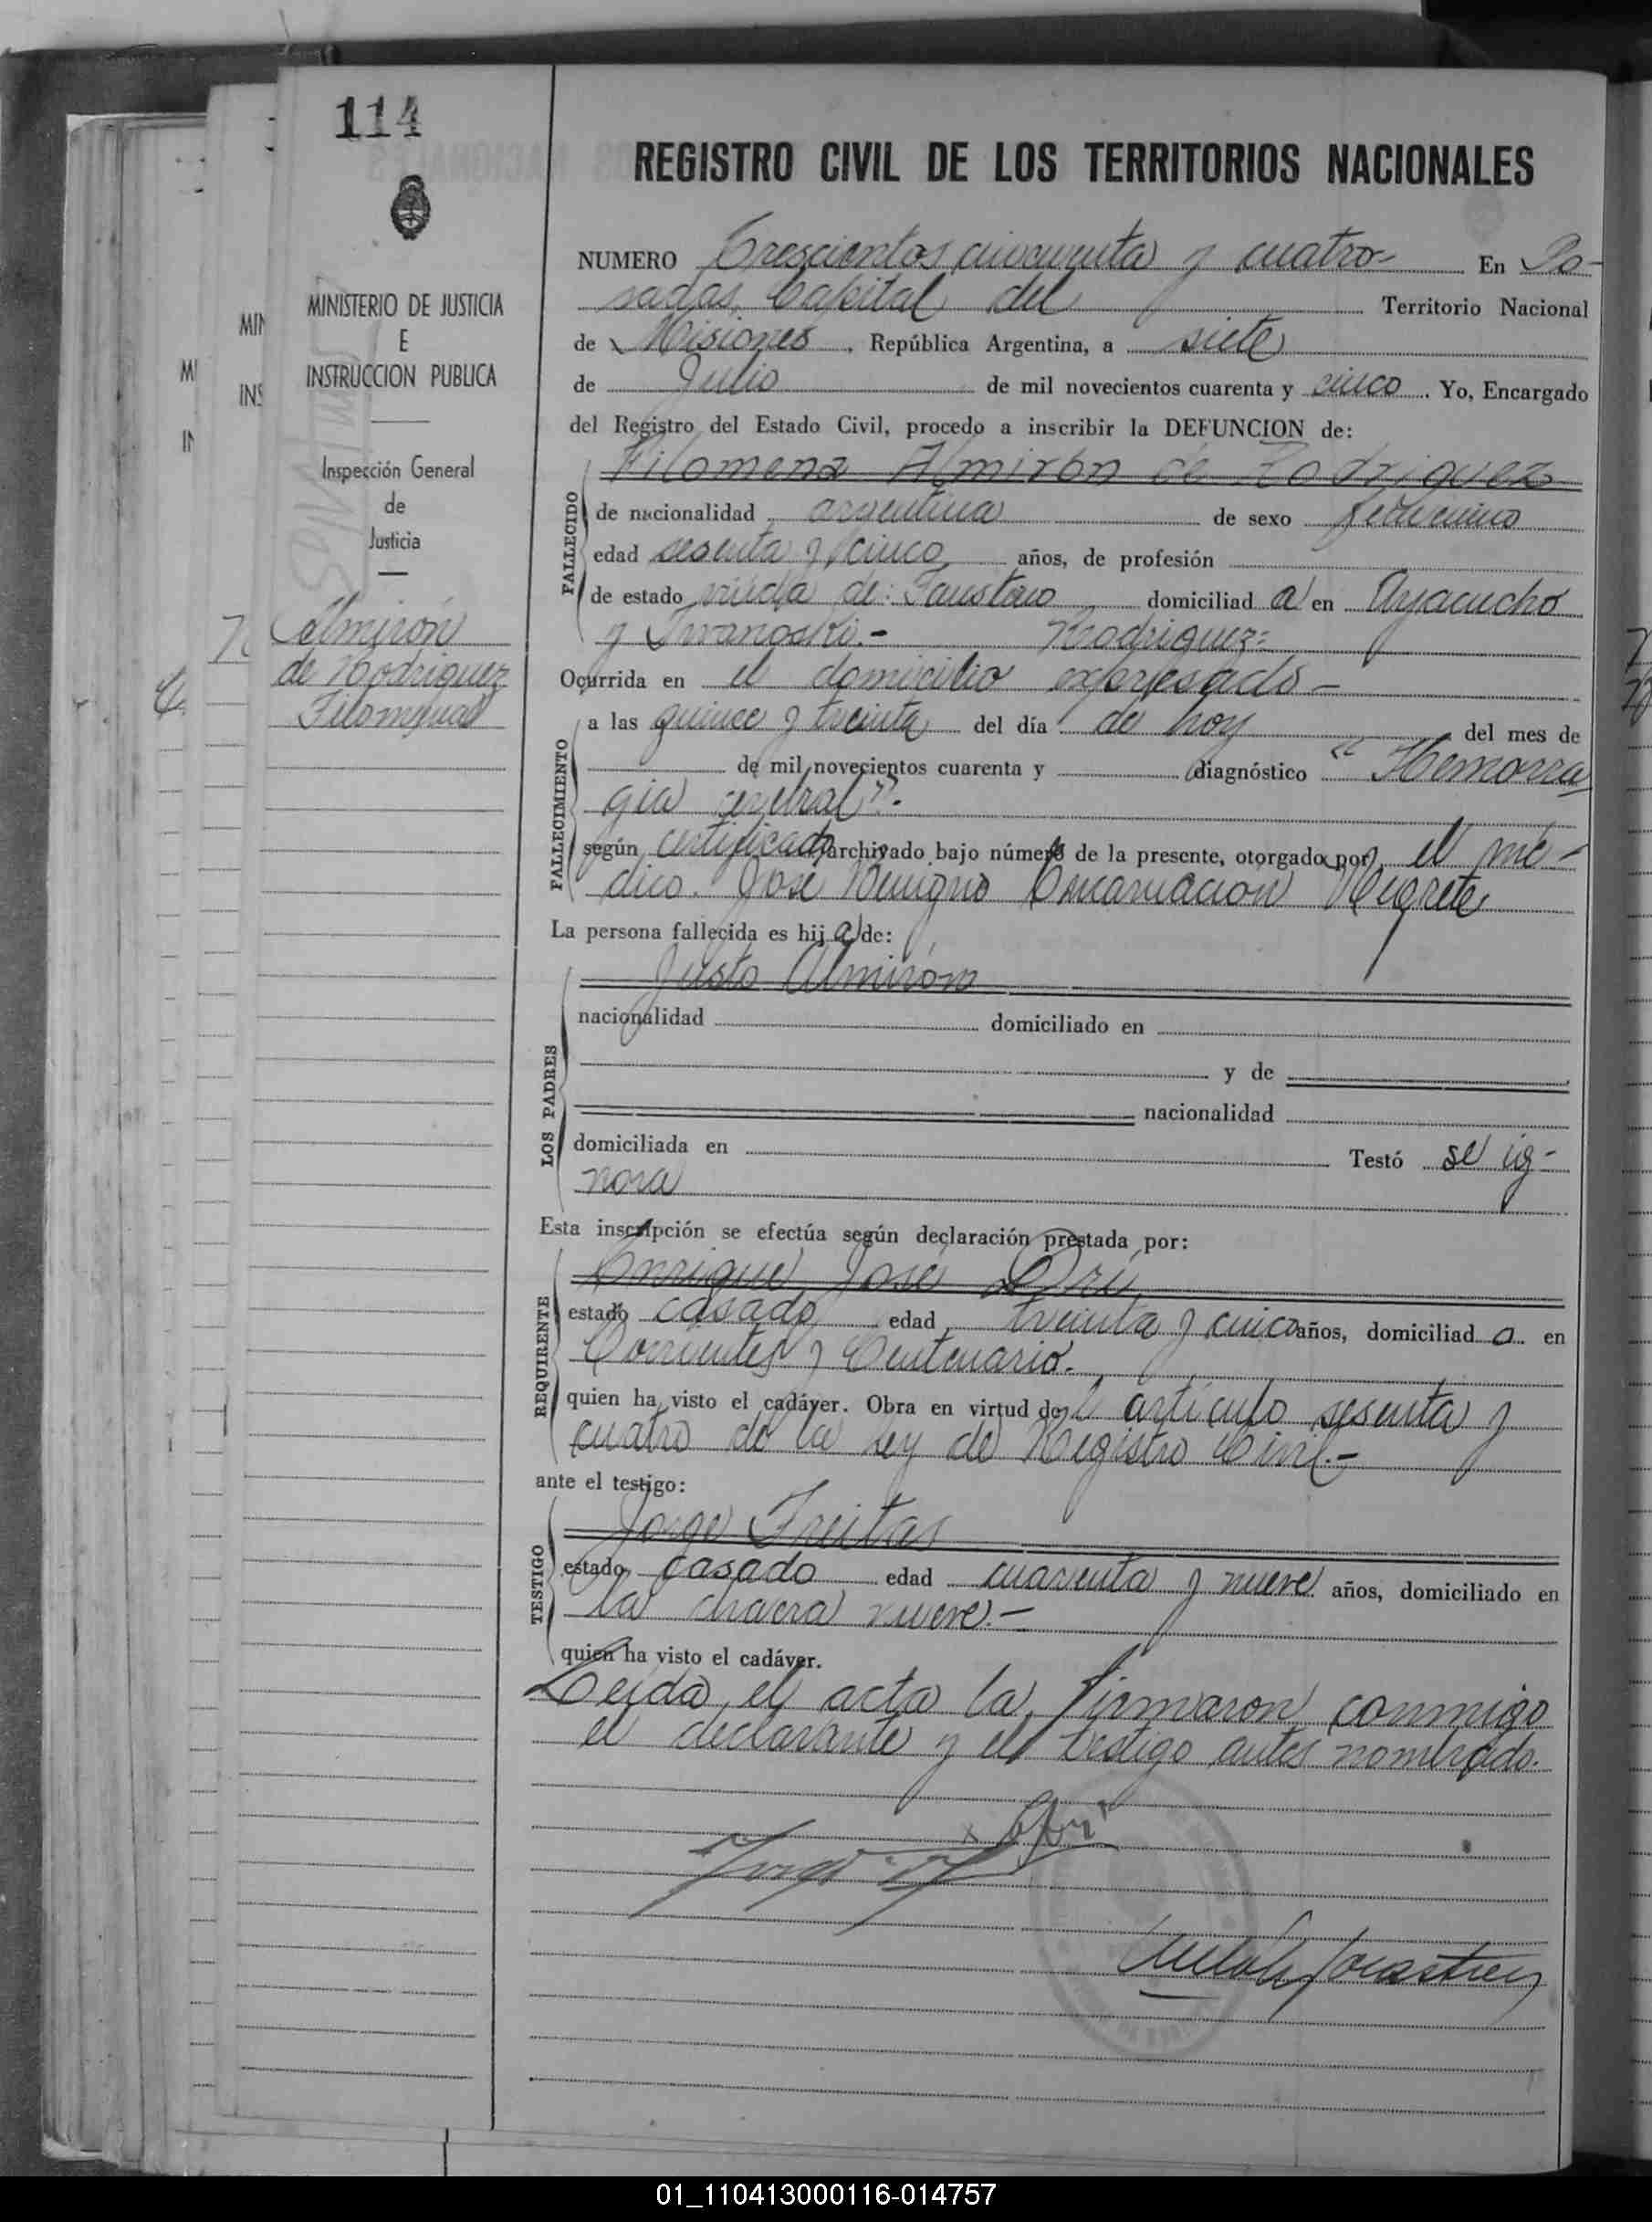 114
REGISTRO CIVIL DE LOS TERRITORIOS NACIONALES
MINISTERIO DE JUSTICIA
E
INSTRUCCION PUBLICA
Inspección General
de
Justicia
Almirón
de Rodriguez
Filomena
NUMERO Trescientos cincuenta y cuatro- En Po-
sadas, Capital del Territorio Nacional
de Misiones, República Argentina, a siete
de Julio de mil novecientos cuarenta y cinco. Yo, Encargado
del Registro del Estado Civil, procedo a inscribir la DEFUNCION de:
FALLECIDO
Filomena Almirón de Rodriguez
de nacionalidad argentina de sexo femenino
edad sesenta y cinco años, de profesión
de estado viuda de: Faustino domiciliad a en Ayacucho
y Rodriguez=
Ocurrida en el domicilio expresado-
FALLECIMIENTO
a las quince y treinta del día de hoy del mes de
de mil novecientos cuarenta y diagnóstico "Hemorra
gia cerebral".
según certificado archivado bajo número de la presente, otorgado por el mé-
dico José Benigno Encarnación Negrete
La persona fallecida es hij a de:
LOS PADRES
Justo Almirón
nacionalidad domiciliado en
y de
nacionalidad
domiciliada en Testó se ig-
nora
Esta inscripción se efectúa según declaración prestada por:
REQUIRENTE
Enrique José Dri,
estado casado edad treinta y cinco años, domiciliad o en
Corrientes y Centenario.
quien ha visto el cadáver. Obra en virtud del artículo sesenta y
cuatro de la ley de Registro Civil.-
ante el testigo:
TESTIGO
Jorge Freitas
estado casado edad cuarenta y nueve años, domiciliado en
la chacra nueve.-
quien ha visto el cadáver.
Leida el acta la firmaron conmigo
el declarante y el testigo antes nombrado.
01_110413000116-014757